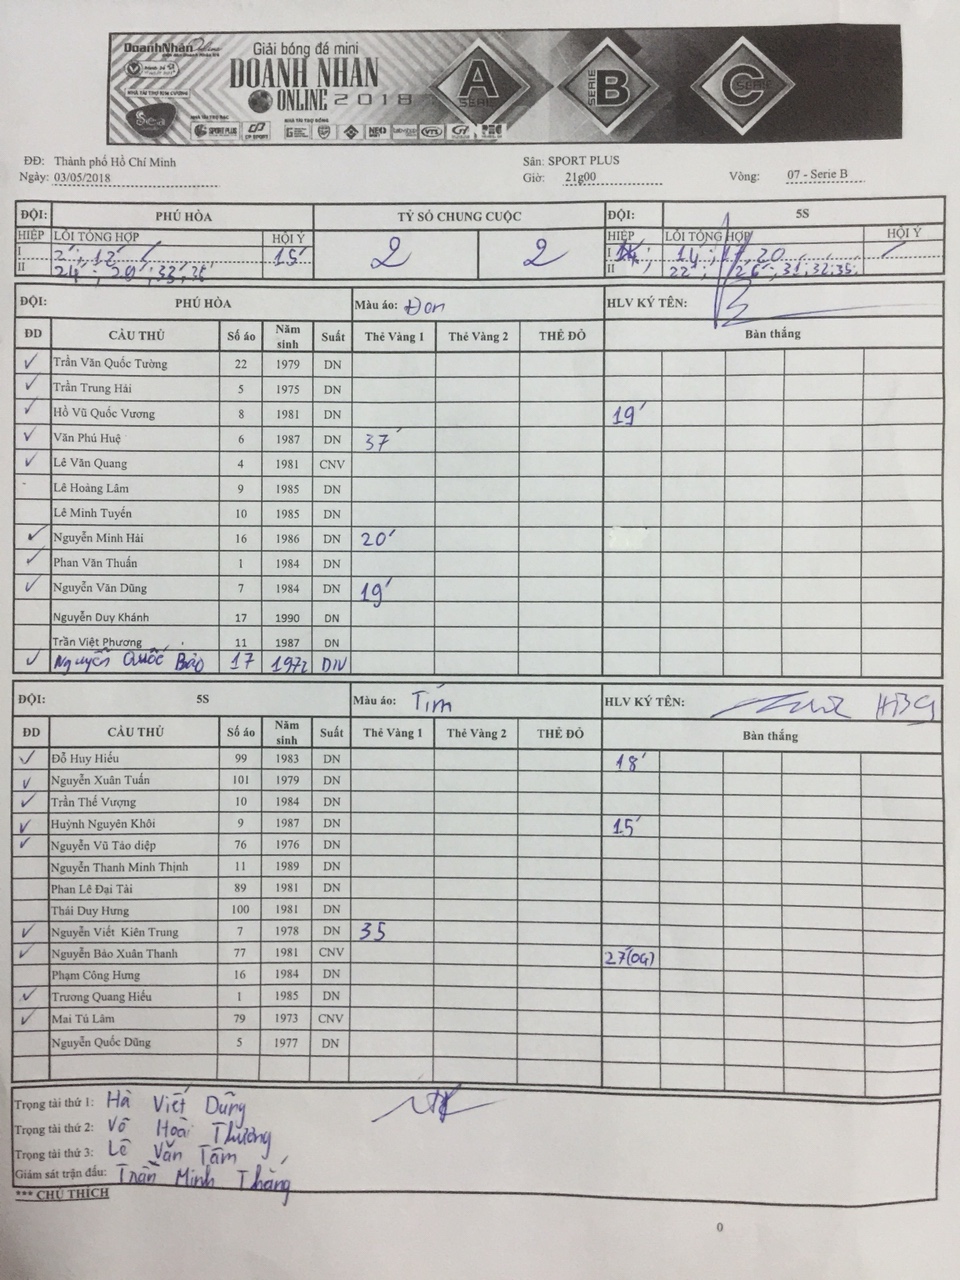 DoanhNhân Online
Giải bóng đá mini
DOANH NHÂN
ONLINE 2018
NHÀ TÀI TRỢ KIM CƯƠNG
Sea
NHÀ TÀI TRỢ BẠC
NHÀ TÀI TRỢ ĐỒNG
SPORT PLUS
CP SPORT
A SERIE
SERIE B
SERIE C
ĐĐ: Thành phố Hồ Chí Minh Sân: SPORT PLUS
Ngày: 03/05/2018 Giờ: 21g00 Vòng: 07 - Serie B
ĐỘI: PHÚ HÒA TỶ SỐ CHUNG CUỘC ĐỘI: 5S
HIỆP LỖI TỔNG HỢP HỘI Ý 2 2 HIỆP LỖI TỔNG HỢP HỘI Ý
I 2'; 12' 15' I 14'; 17, 20
II 24'; 29'; 33', II 22'; 26'; 31; 32; 35.
ĐỘI: PHÚ HÒA Màu áo: Đen HLV KÝ TÊN:
ĐD CẦU THỦ Số áo Năm sinh Suất Thẻ Vàng 1 Thẻ Vàng 2 THẺ ĐỎ Bàn thắng
✓ Trần Văn Quốc Tường 22 1979 DN
✓ Trần Trung Hải 5 1975 DN
✓ Hồ Vũ Quốc Vương 8 1981 DN 19'
✓ Văn Phú Huệ 6 1987 DN 37'
✓ Lê Văn Quang 4 1981 CNV
Lê Hoàng Lâm 9 1985 DN
Lê Minh Tuyến 10 1985 DN
✓ Nguyễn Minh Hải 16 1986 DN 20'
✓ Phan Văn Thuấn 1 1984 DN
✓ Nguyễn Văn Dũng 7 1984 DN 19'
Nguyễn Duy Khánh 17 1990 DN
Trần Việt Phương 11 1987 DN
✓ Nguyễn Quốc Bảo 17 1972 DN
ĐỘI: 5S Màu áo: Tím HLV KÝ TÊN:
ĐD CẦU THỦ Số áo Năm sinh Suất Thẻ Vàng 1 Thẻ Vàng 2 THẺ ĐỎ Bàn thắng
✓ Đỗ Huy Hiếu 99 1983 DN 18'
✓ Nguyễn Xuân Tuấn 101 1979 DN
✓ Trần Thế Vượng 10 1984 DN
✓ Huỳnh Nguyên Khôi 9 1987 DN 15'
✓ Nguyễn Vũ Tảo diệp 76 1976 DN
Nguyễn Thanh Minh Thịnh 11 1989 DN
Phan Lê Đại Tài 89 1981 DN
Thái Duy Hưng 100 1981 DN
✓ Nguyễn Viết Kiên Trung 7 1978 DN 35
✓ Nguyễn Bảo Xuân Thanh 77 1981 CNV 27'(OG)
Phạm Công Hưng 16 1984 DN
✓ Trương Quang Hiếu 1 1985 DN
✓ Mai Tú Lâm 79 1973 CNV
Nguyễn Quốc Dũng 5 1977 DN
Trọng tài thứ 1: Hà Viết Dũng
Trọng tài thứ 2: Võ Hoài Thương
Trọng tài thứ 3: Lê Văn Tâm
Giám sát trận đấu: Trần Minh Thắng
*** CHÚ THÍCH
0